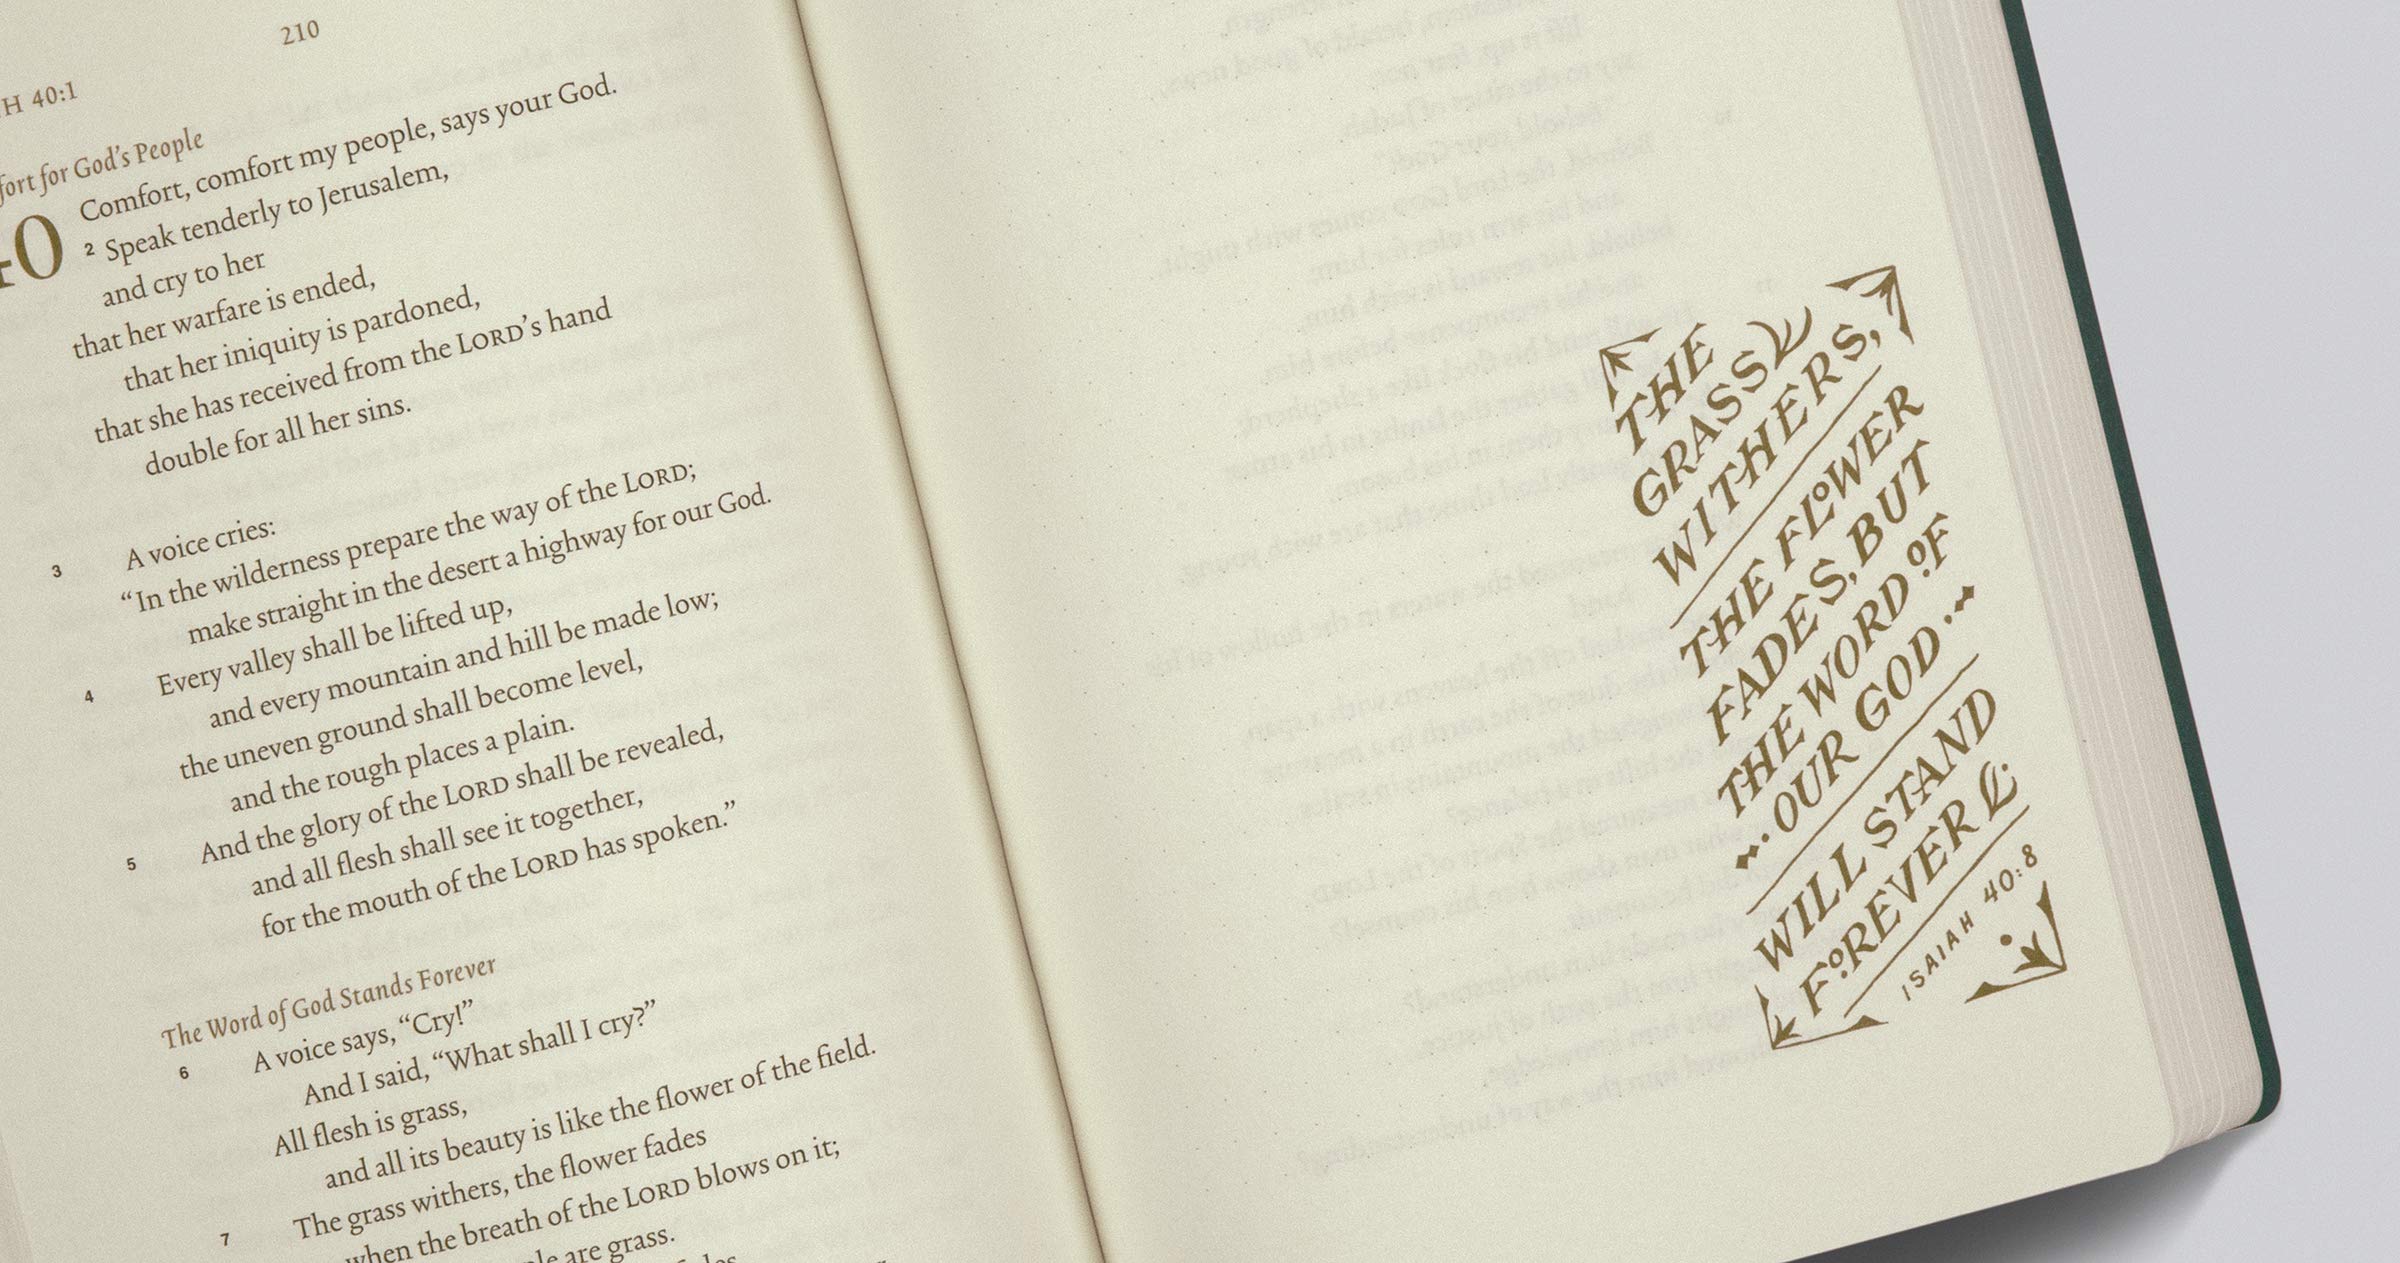 210
H 40:1
fort for God’s People
40 Comfort, comfort my people, says your God.
2 Speak tenderly to Jerusalem,
and cry to her
that her warfare is ended,
that her iniquity is pardoned,
that she has received from the LORD’s hand
double for all her sins.
3 A voice cries:
“In the wilderness prepare the way of the LORD;
make straight in the desert a highway for our God.
4 Every valley shall be lifted up,
and every mountain and hill be made low;
the uneven ground shall become level,
and the rough places a plain.
5 And the glory of the LORD shall be revealed,
and all flesh shall see it together,
for the mouth of the LORD has spoken.”
The Word of God Stands Forever
6 A voice says, “Cry!”
And I said, “What shall I cry?”
All flesh is grass,
and all its beauty is like the flower of the field.
7 The grass withers, the flower fades
when the breath of the LORD blows on it;
are grass.
THE
GRASS
WITHERS,
THE FLOWER
FADES, BUT
THE WORD OF
OUR GOD
WILL STAND
FOREVER
ISAIAH 40:8